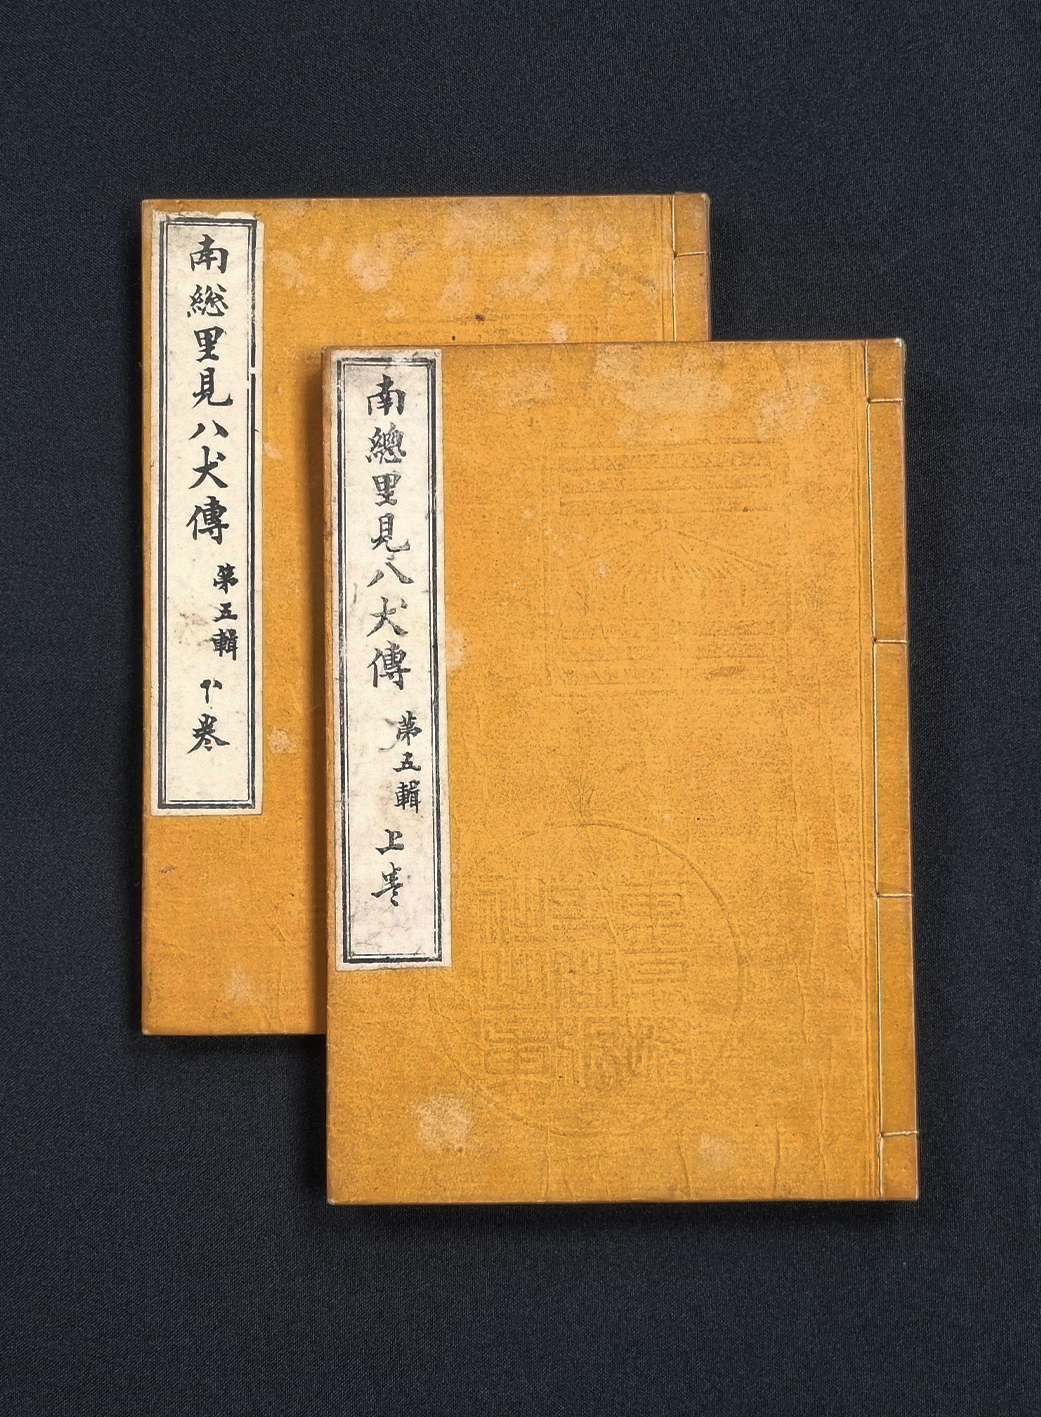 南総里見八犬傳
第五輯
下巻
南總里見八犬傳
第五輯
上巻